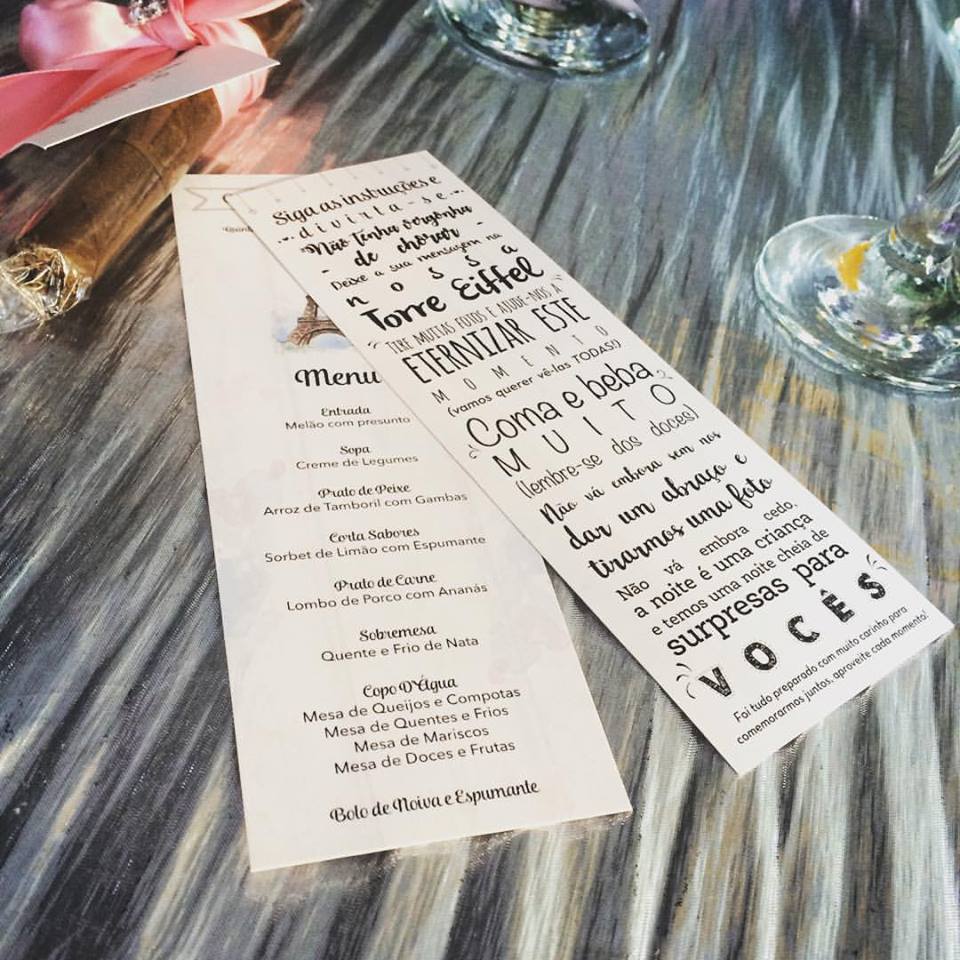 Menu
Entrada
Melão com presunto
Sopa
Creme de Legumes
Prato de Peixe
Arroz de Tamboril com Gambas
Corta Sabores
Sorbet de Limão com Espumante
Prato de Carne
Lombo de Porco com Ananás
Sobremesa
Quente e Frio de Nata
Copo D'Água
Mesa de Queijos e Compotas
Mesa de Quentes e Frios
Mesa de Mariscos
Mesa de Doces e Frutas
Bolo de Noiva e Espumante
Siga as instruções e
divirta-se
Não tenha vergonha
- de chorar -
Deixe a sua mensagem na
nossa
Torre Eiffel
TIRE MUITAS FOTOS E AJUDE-NOS A
ETERNIZAR ESTE
MOMENTO
(vamos querer vê-las TODAS!)
Coma e beba
MUITO
(lembre-se dos doces)
Não vá embora sem nos
dar um abraço e
tirarmos uma foto
Não vá embora cedo,
a noite é uma criança
e temos uma noite cheia de
surpresas para
VOCÊS
Foi tudo preparado com muito carinho para
comemorarmos juntos, aproveite cada momento!